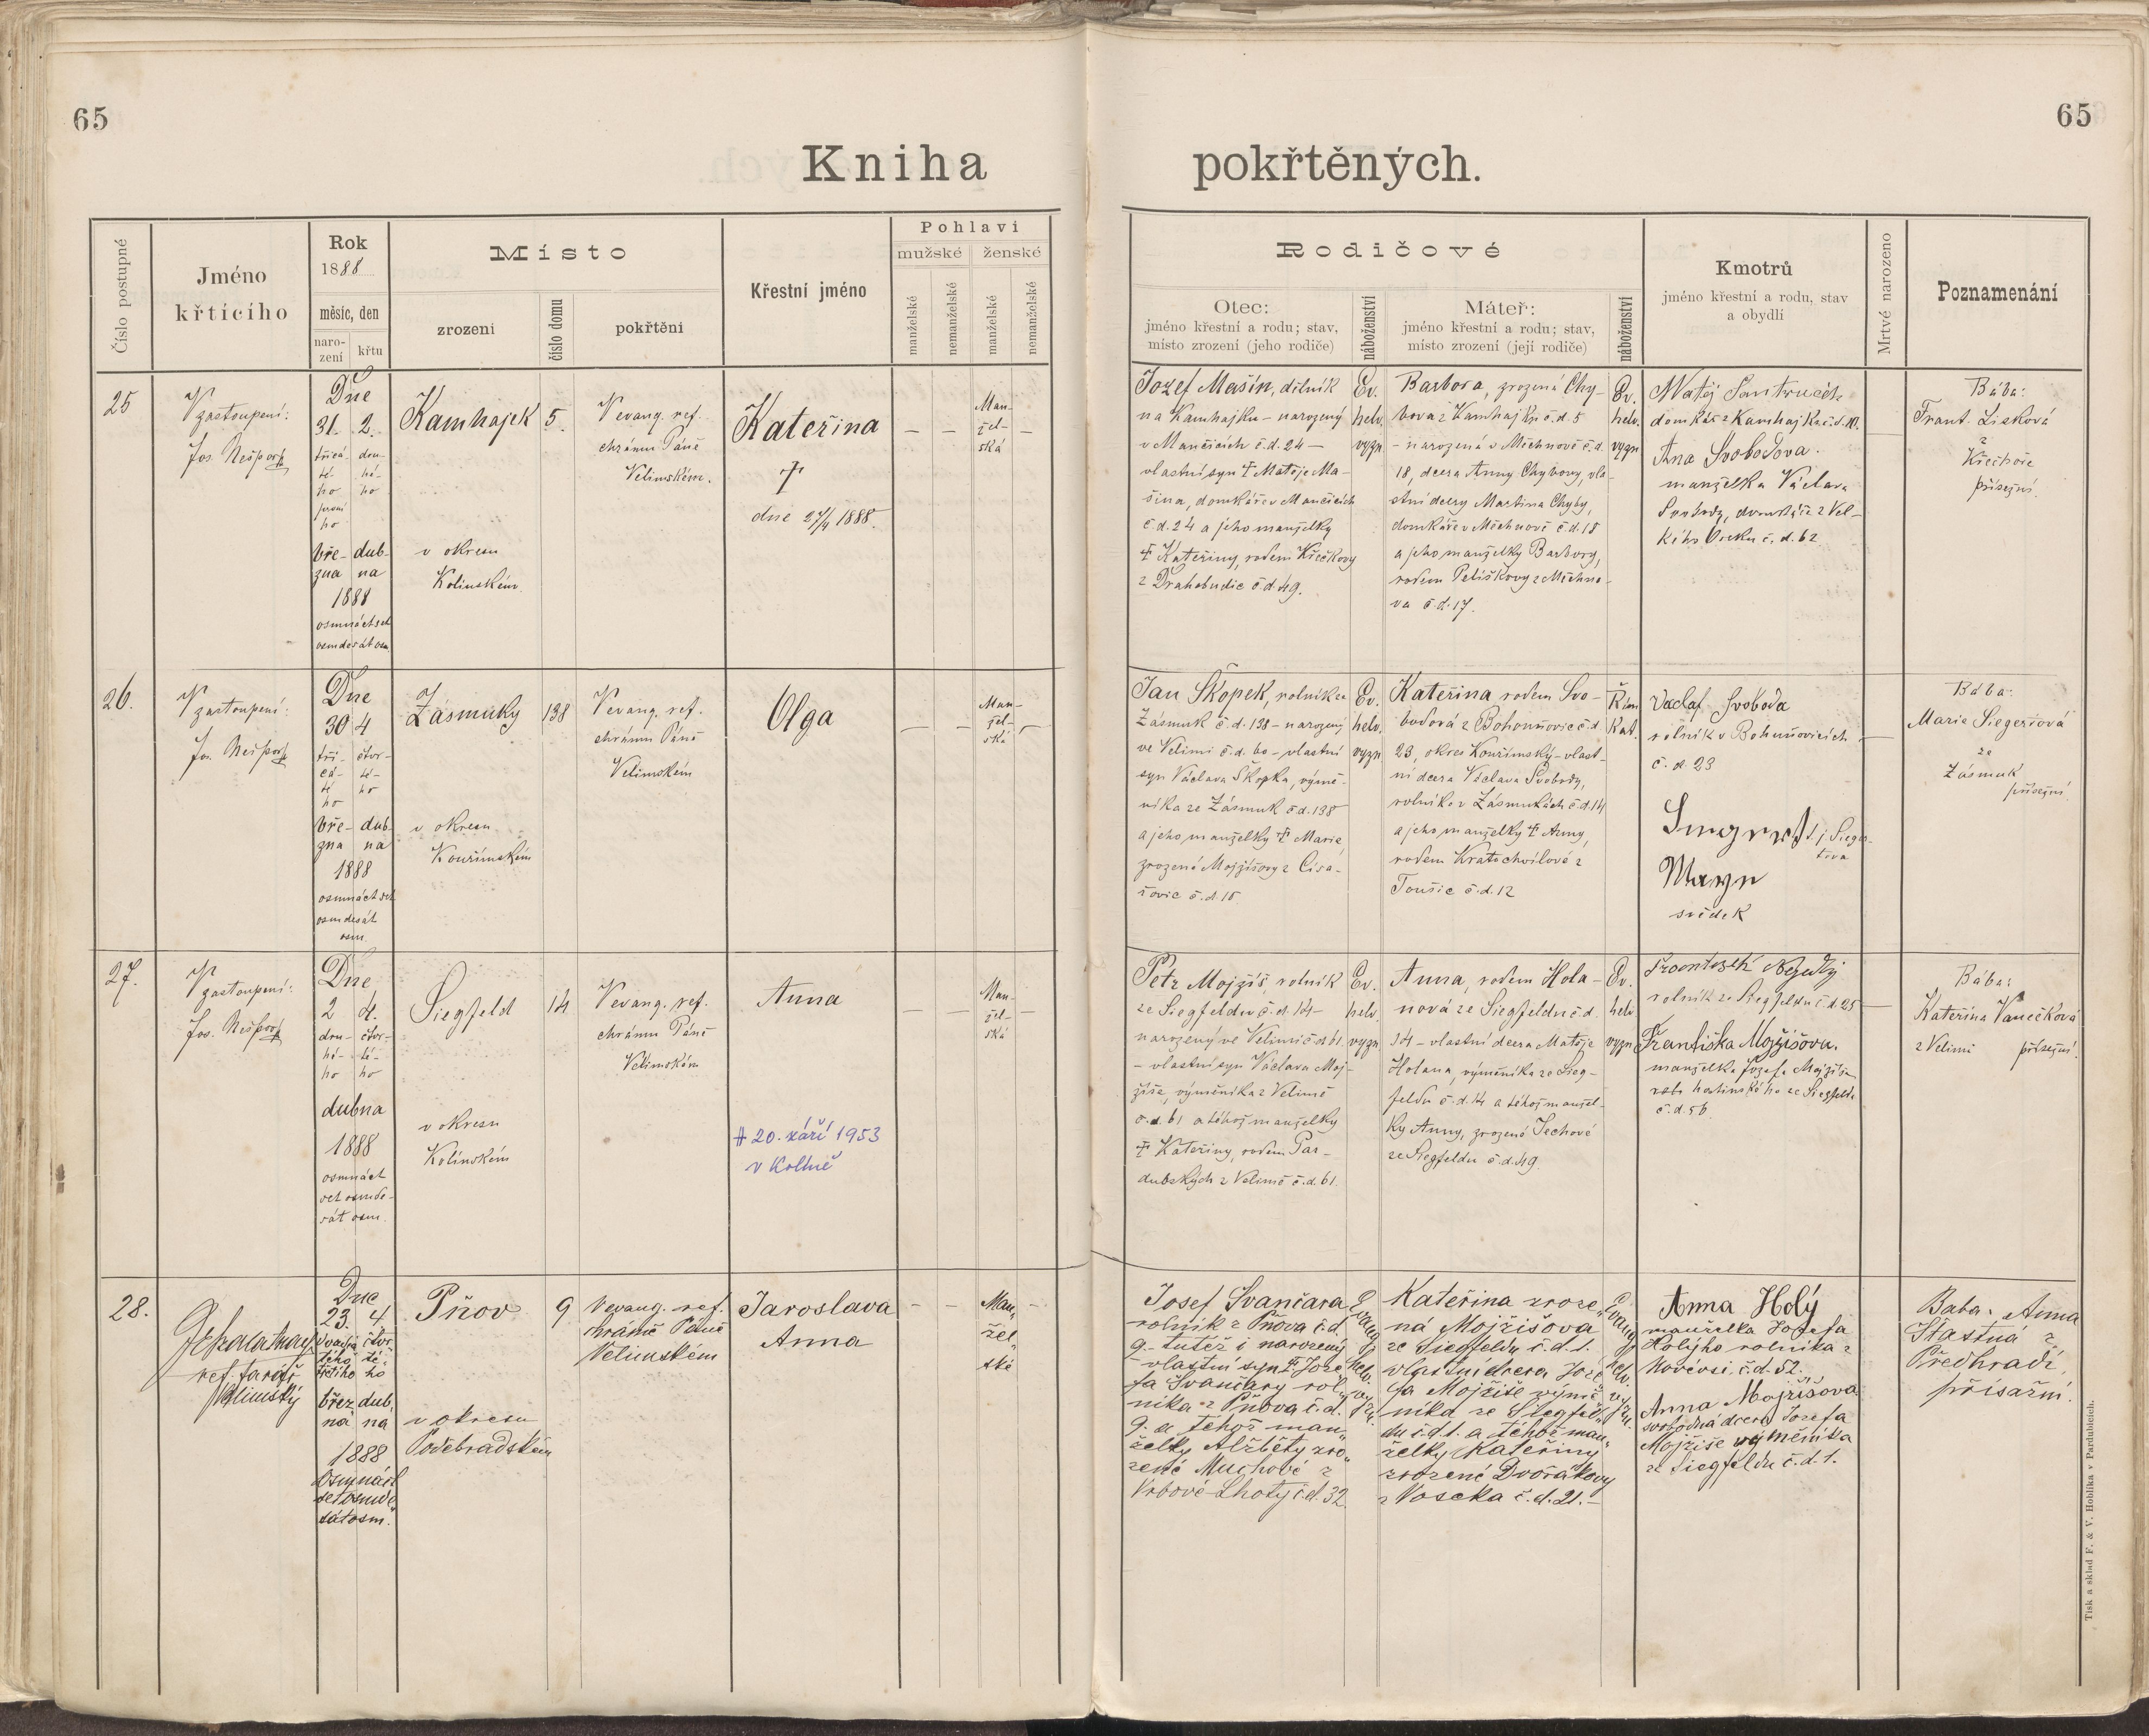 65
65
Kniha
pokřtěných.
Číslo postupné
Jméno
křtícího
Rok
1888
měsíc, den
naro-
zení
křtu
Místo
zrození
číslo domu
pokřtění
Křestní jméno
Pohlaví
mužské
ženské
manželské
nemanželské
manželské
nemanželské
Rodičové
Otec:
jméno křestní a rodu; stav,
místo zrození (jeho rodiče)
náboženství
Máteř:
jméno křestní a rodu; stav,
místo zrození (její rodiče)
náboženství
Kmotrů
jméno křestní a rodu, stav
a obydlí
Mrtvé narozeno
Poznamenání
25
V zastoupení:
Jos. Nešpor
Dne
31. 2.
třicá- dru-
té- hé-
ho ho
první
ho
bře- dub-
zna na
1888
osmnáctset
osmdesát osm
Kamhajek
5.
v okresu
Kolínském
V evang. ref.
chrámu Páně
Velimském.
Kateřina
†
dne 27/4 1888.
— —
Man-
žel-
ská
—
Jozef Mašín, dělník
na Kamhajku – narozený
v Mančicích č.d. 24 –
vlastní syn † Matěje Ma-
šína, domkáře v Mančicích
č.d. 24 a jeho manželky
† Kateřiny, rodem Křečkovy
z Drahobudic č.d. 49.
Ev.
helv.
vyzn.
Barbora, zrozená Chy-
bova z Kamhajku č.d. 5
– narozená v Měchnově č.d.
18, dcera Anny Chybovy, vla-
stní dcery Martina Chyby,
domkáře v Měchnově č.d. 18
a jeho manželky Barbory,
rodem Peliškovy z Měchno-
va č.d. 17.
Ev.
helv.
vyzn.
Matěj
domkář z Kamhajku č.d. 10.
Ana Svobodova.
manželka Václava
Svobody, domkáře z Vel-
kého Oseku č. d. 62
—
Bába:
Frant. Lisková
z
Křečhoře
přísežní.
26.
V zastoupení:
Jos. Nešpor
Dne
30 4
tři- čtvr-
cá- té-
té ho
ho
bře- dub-
zna na
1888
osmnáctset
osmdesát
osm.
Zásmuky
138
v okresu
Kouřimském
V evang. ref.
chrámu Páně
Velimském
Olga
— —
Man-
žel-
ská
—
Jan Škopek, rolník ze
Zásmuk č.d. 138 – narozený
ve Velimi č.d. 60 – vlastní
syn Václava Škopka, výmě-
níka ze Zásmuk č.d. 138
a jeho manželky † Marie,
zrozené Mojžíšovy z Císa-
řovic č.d. 15
Ev.
helv.
vyzn.
Kateřina rodem Svo-
bodová z Bohouňovic č.d.
23, okres Kouřimský – vlast-
ní dcera Václava Svobody,
rolníka v Zásmukách č.d. 14
a jeho manželky † Anny,
rodem Kratochvílové z
Toušic č.d. 12
Řím.
Kat.
Vaclaf Svoboda
rolník v Bohuňovicích
č. d. 23
svědek
—
Bába:
Marie Siegertová
ze
Zásmuk
přísežní.
27.
V zastoupení:
Jos. Nešpor
Dne
2 4.
dru- čtvr-
hé- té-
ho ho
dubna
1888
osmnáct
set osmde-
sát osm.
Siegfeld
14
v okresu
Kolínském
V evang. ref.
chrámu Páně
Velimském
Anna
‡ 20. září 1953
v Kolíně
— —
Man-
žel-
ská
—
Petr Mojžíš, rolník
ze Siegfeldu č.d. 14 –
narozený ve Velimi č.d. 61.
– vlastní syn Václava Moj-
žíše, výměníka z Velimě
č.d. 61 a téhož manželky
† Kateřiny, rodem Par-
dubských z Velimě č.d. 61.
Ev.
helv.
vyzn.
Anna, rodem Hola-
nová ze Siegfeldu č.d.
14 – vlastní dcera Matěje
Holana, výměníka ze Sieg-
feldu č.d. 14 a téhož manžel-
ky Anny, zrozené Techové
ze Siegfeldu č.d. 49.
Ev.
helv.
vyzn.
rolník ze Siegfeldu č.d. 25
Františka Mojžíšova.
manželka Jozefa Mojžíše
hostinského ze Siegfeldu
č.d. 56
—
Bába:
Kateřina Vanečková
z Velimi přísežní.
28.
ref. farář
Velimský
Dne
23. 4.
dvacá- čtvr-
tého té-
třetího ho
břez dub„
na na
1888
Osmnáct
set osmde„
sát osm.
Pňov
9
v okresu
Poděbradském
V evang. ref.
chrámě Páně
Velimském
Jaroslava
Anna
— —
Man„
žel„
ské
—
Josef Švančara
rolník z Pňova č.d.
9.– tutéž i narozený
– vlastní syn † Joze„
fa Švančary rol„
níka z Pňova č.d.
9. a téhož man„
želky Alžběty zro„
zené Muchové z
Vrbové Lhoty č.d. 32.
Evang.
helv.
vyzn.
Kateřina zroze„
ná Mojžíšova
ze Siegfeldu č.d. 1.
vlastní dcera Joze„
fa Mojžíše výmě„
níka ze Siegfel„
du č.d. 1. a téhož man„
želky Kateřiny
zrozené Dvořákovy
z Voseka č.d. 21.–
Evang.
helv.
vyzn.
Anna Holý
manželka Josefa
Holýho rolníka z
Novévsi č.d. 52.
Anna Mojžíšova
svobodná dcera Jozefa
Mojžíše výměníka
ze Siegfeldu č.d. 1.
Baba: Anna
Šťastná z
Předhradí
přísažní.
Tisk a sklad F. & V. Hoblíka v Pardubicích.